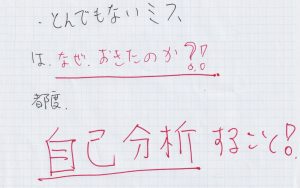 ・とんでもないミス
は、なぜ、おきたのか?!
都度、
自己分析すること!